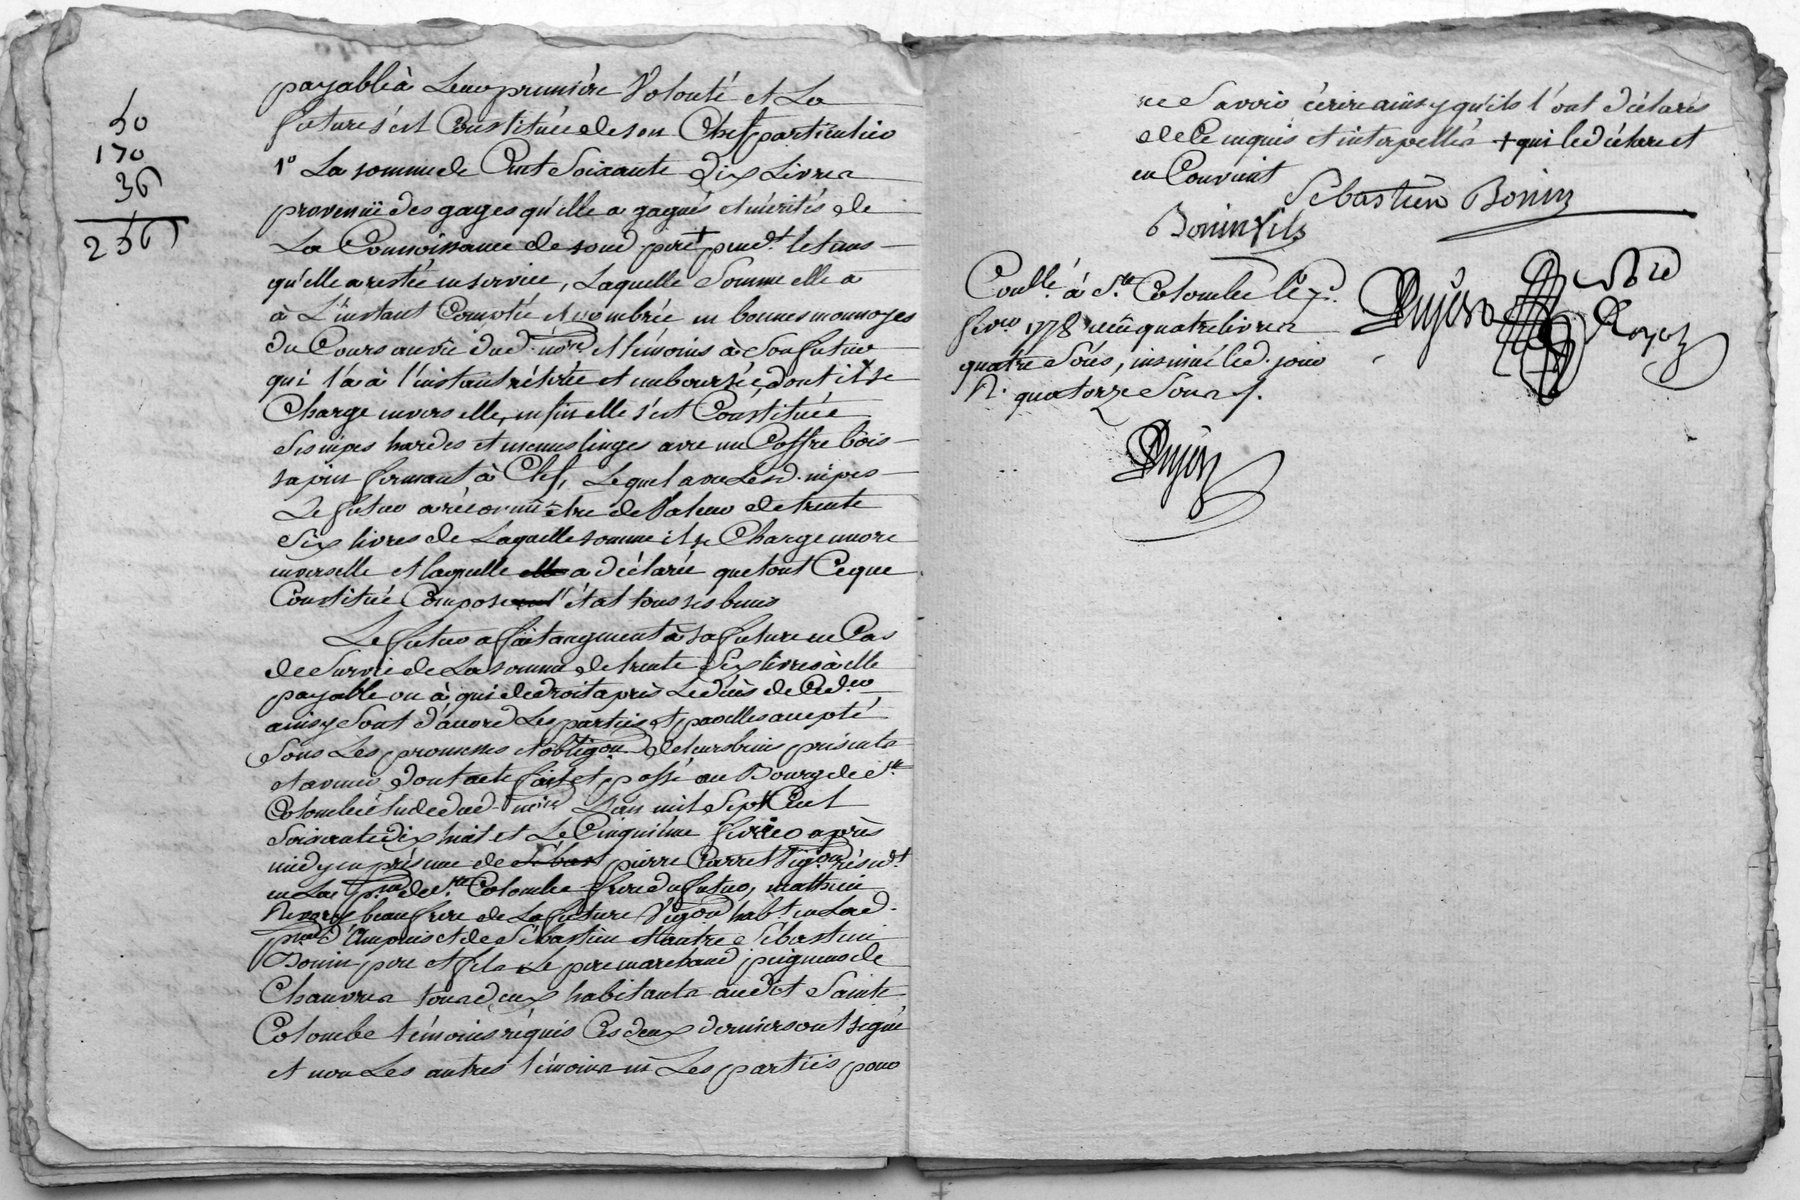 50
170
36
256
payable à Leur premiére Volonté et La
future s'est Constituée de son Chef particulier
1° La somme de Cent Soixante Dix Livres
provenüe des gages qu'elle a gagnés et mérités de
La Connoissance de sond. pere + pend.t le tems
qu'elle a restée en service, Laquelle Somme elle a
à L'instant Comptée et nombrée en bonnes monnoyes
du Cours au vû dud. no.re et témoins à Son futur
qui l'a à l'instant rétirée et emboursée, dont il se
Charge envers elle, enfin elle s'est Constituée
Ses nipes hardes et menus linges avec un Coffre bois
sapin fermant à Clef, Lequel avec Lesd. nipes
Le futur a réconnu être de Valeur de trente
Six livres de Laquelle somme il se Charge encore
envers elle et laquelle elle a déclarée que tout Ce que
Constitué Compose l'état tous ses biens
Le futur a fait augment à sa future en Cas
de Survie de La somme de trente Six livres à elle
payable ou à qui de droit après Le décès de Ced.
ainsy Sont d'acord Les parties et par elles accepté
Sous Les promesses et obligõn De leurs biens présents
et avenir, dont acte fait et passé au Bourg de S.te
Colombe étude dud. no.re L'an mil Sept Cent
Soixante dix huit et Le Cinquième fevrier après
midy en présence de Sébas pierre Carret Vigõn résid.t
en La p.sse de S.te Colombe frere du futur, mathieu
beaufrere de La future Vigõn hab.t en Lad.
p.sse d'Ampuis et de Sébastien et autre Sébastien
Bonin pere et fils Le pere marchand peigneur de
Chanvres tous deux habitants audit Sainte
Colombe témoins réquis Ces deux derniers ont signé
et non Les autres témoins ni Les parties pour
ne Savoir écrire ainsy qu'ils l'ont déclarés
de Ce enquis et interpellés + qui le déclare et
en Convient
Sébastien Bonin
Bonin fils
Conllé à S.te Colombe le 7.e
fevrier 1778 reçû quatre livres
quatre Sols, insinué led. jour
R. quatorze Sous
Dujast